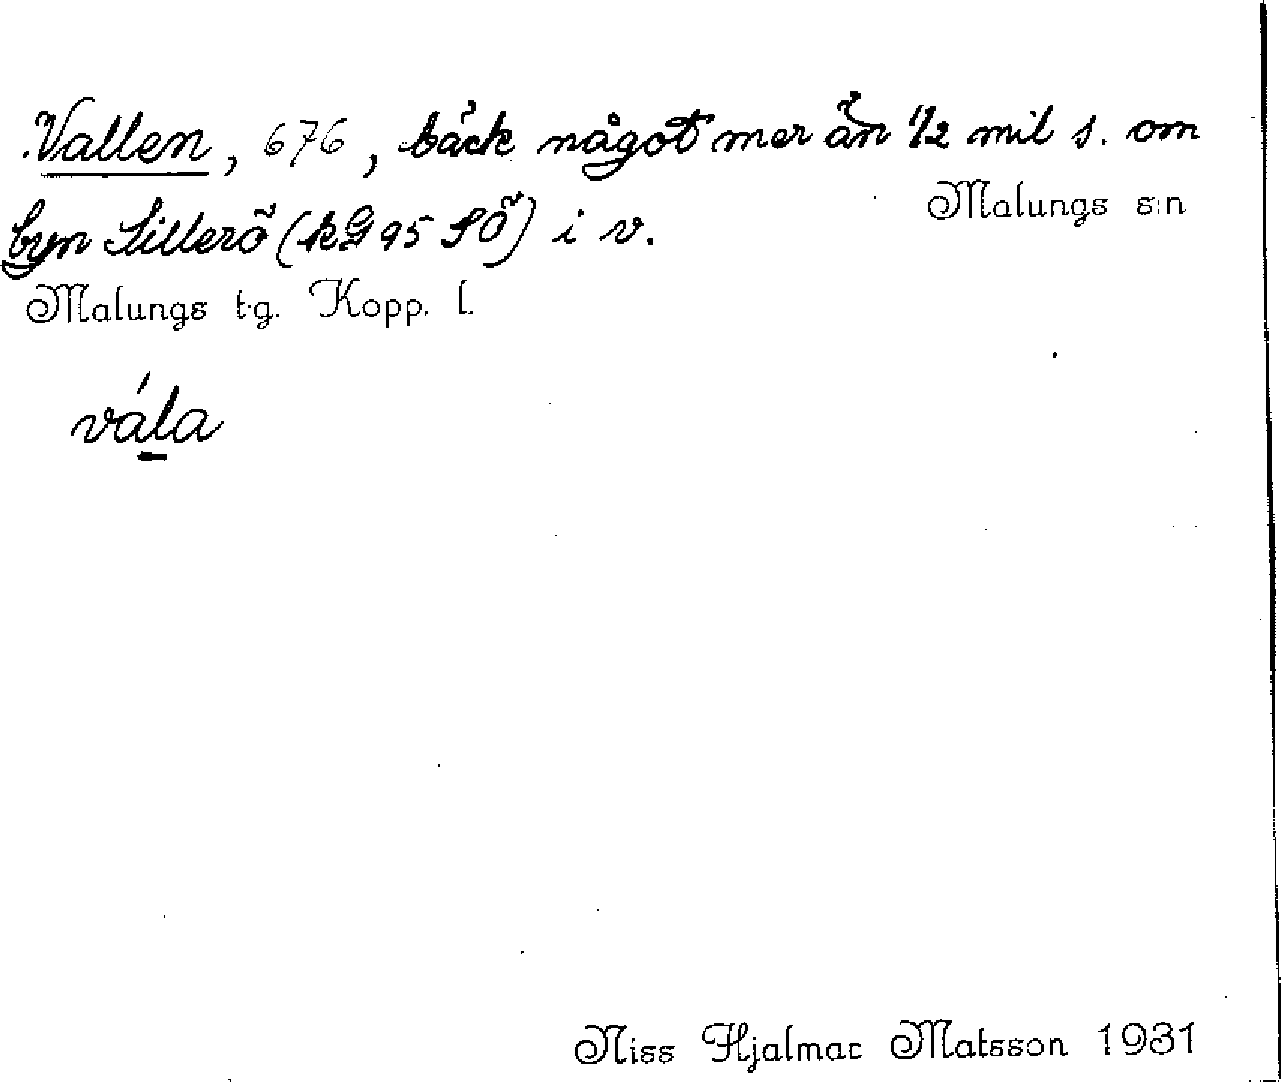 Vallen, 676, bäck något mer än 1/2 mil s. om
Malungs s:n
byn Sillerö (kG 95 SÖ) i v.
Malungs t.g. Kopp. l.
vála
Niss Hjalmar Matsson 1931